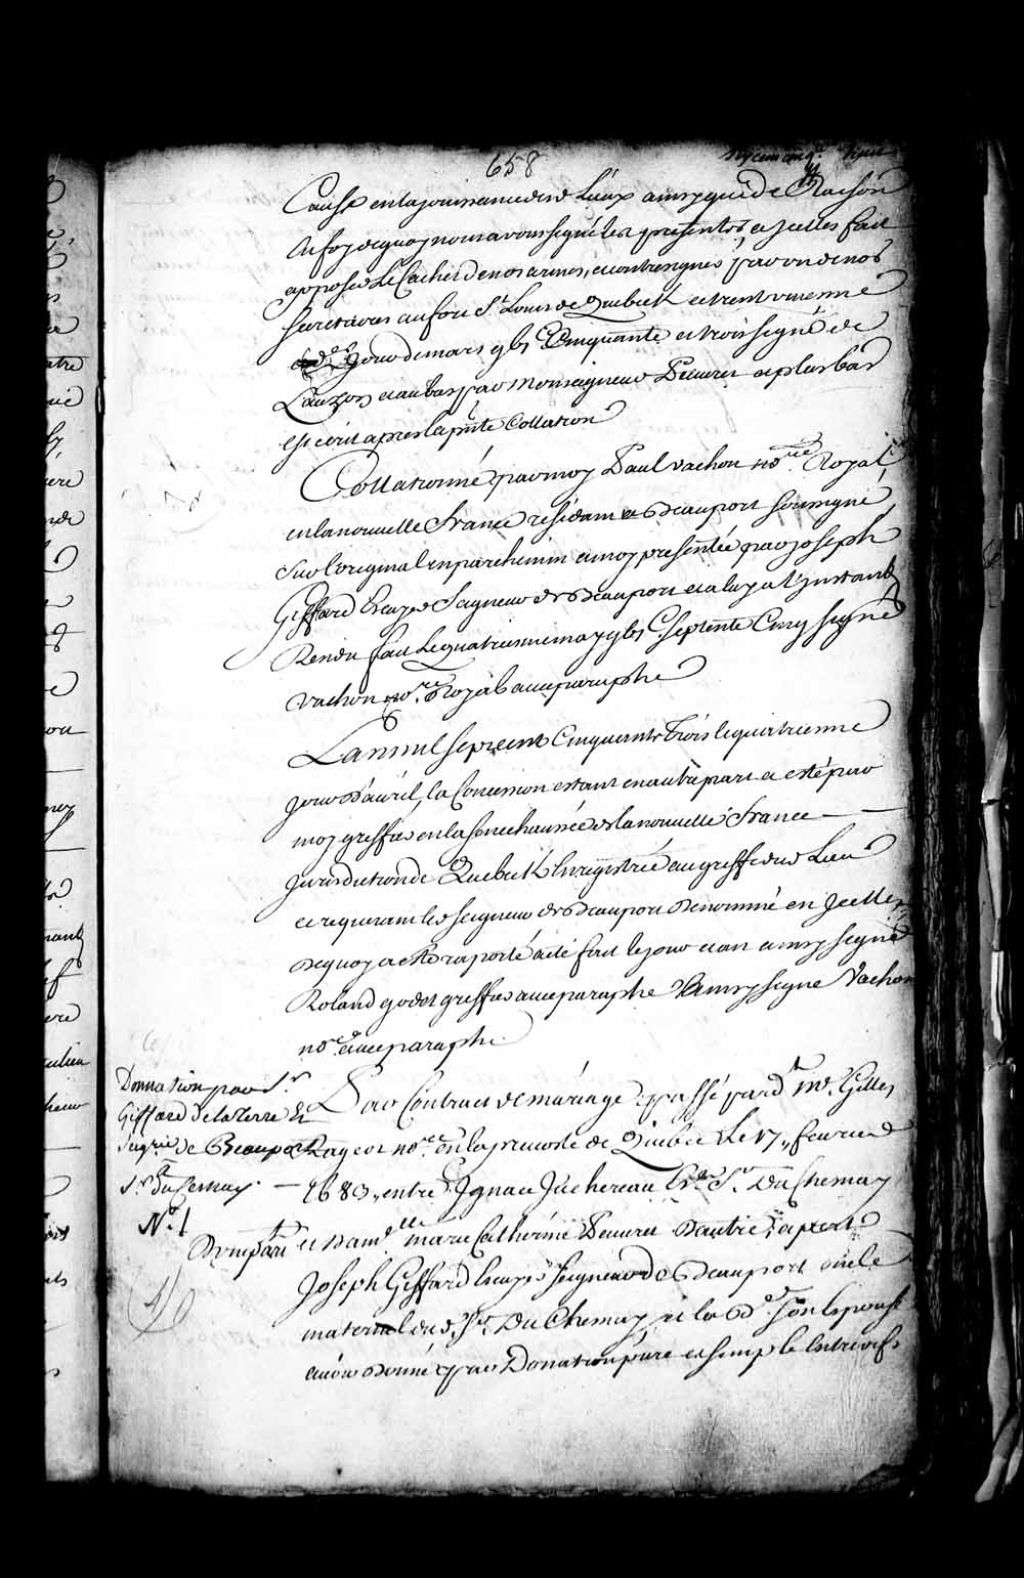 658
Cause en la jouissance desd Lieux ainsy que de Raison
En foy de quoy nous avons signé les presentes, a jcelles fait
apposer Le Cachet de nos armes, et contresigner par un de nos
secretaires au fort St Louis de Quebek ce trent uniesme
jour de mars gbj Cinquante et trois signé de
Lauzon et au bas par Monseigneur Peuvret et plus bas
est ecrit apres la pnte Collation
Collationné par moy Paul vachon nore Royal
en la nouvelle France residant a Beauport soussigné
sur l'original en parchemin a moy presentée par joseph
Giffard Escuyer Seigneur de Beauport et a luy a l'jnstant
Rendu fait Le quatriesme may gbj C septente Cinq signé
vachon nore Royal avec paraphe
L'an mil sept cent Cinquante Trois le quatriesme
jour d'avril, la Concession estant en autre part a esté par
moy greffier en la senechaussée de la nouvelle France
jurisdiction de Quebek Enregistrée au greffe dud Lieu
ce requerant led seigneur de Beauport denommé en jcelle
de quoy acte raporté a été fait le jour et an ainsy signé
Roland godet greffier avec paraphe Ainsy signé Vachon
nore avec paraphe
Donnation par Sr
Giffard de la terre &
Seigrie de Beauport
Sr du Chesnay
No. 1
Par Contract de mariage passé pard Me Gilles
Rageot nore en la prevosté de Quebec Le 17, fevrier
1683, entre Ignace Juchereau Er Sr Du Chesnay
D'une part et damlle marie Catherine Peuvret d'autre, apert
Joseph Giffard Escuyer Seigneur de Beauport oncle
maternel dud. Sr Du Chesnay et la de son Epouse
avoir donné par Donation pure et simple Entrevifs